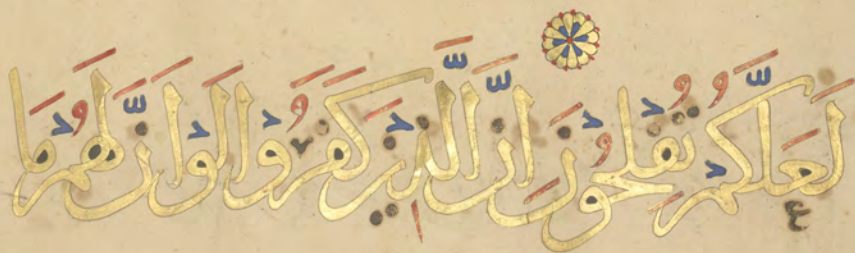 لَعَلَّكُمْ تُفْلِحُونَ إِنَّ الَّذِينَ كَفَرُوا لَوْ أَنَّ لَهُمْ مَا